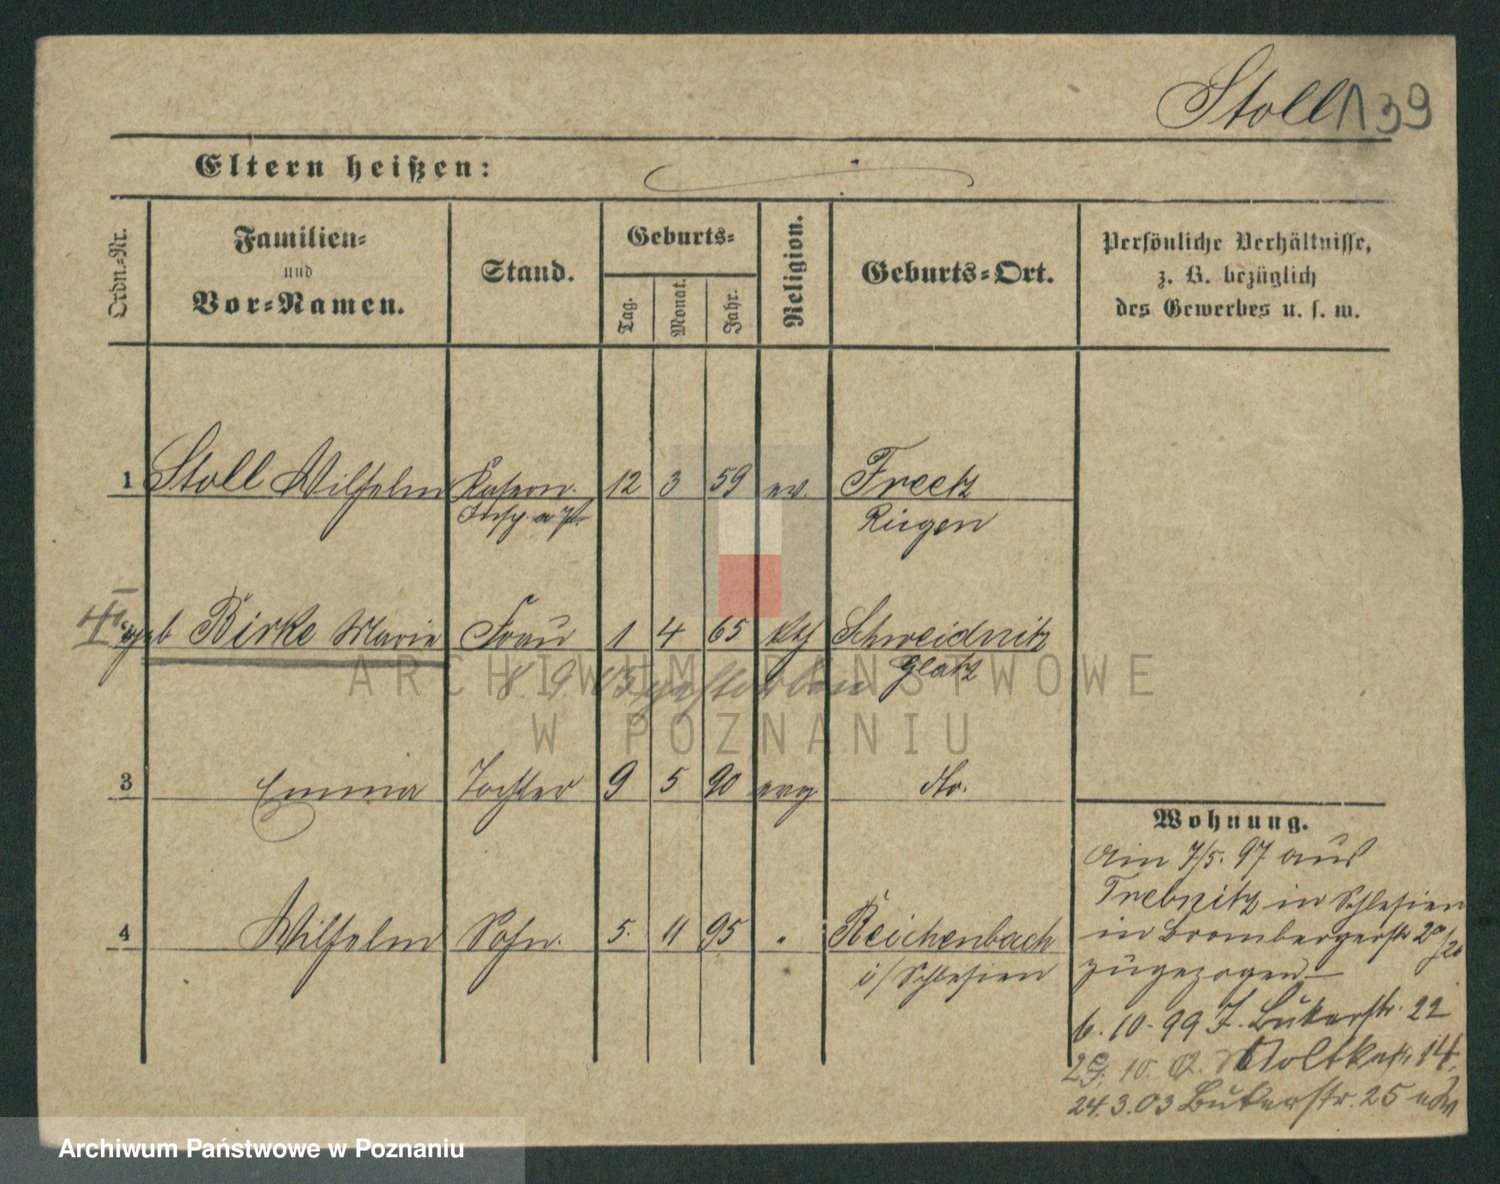 Stoll 139
Eltern heißen:
Ordn.-Nr.
Familien-
und
Vor-Namen.
Stand.
Geburts-
Tag.
Monat.
Jahr.
Religion.
Geburts-Ort.
Persönliche Verhältnisse,
z. B. bezüglich
des Gewerbes u. s. w.
1 Stoll Wilhelm Kasern. 12 3 59 ev. Freetz
Insp. Rügen
geb Birke Marie Frau 1 4 65 kth Schweidnitz
8 9 gestorben Glatz
ARCHIWUM PAŃSTWOWE
W POZNANIU
3 Emma Tochter 9 5 90 evg dto.
4 Wilhelm Sohn. 5. 11 95 " Reichenbach
i/Schlesien
Wohnung.
Am 7/5. 97 aus
Trebnitz in Schlesien
in Brombergerstr 20/
zugezogen —
6. 10. 99 Bukerstr. 22
10. Moltkestr. 14.
24.3.03 Bukerstr. 25
Archiwum Państwowe w Poznaniu